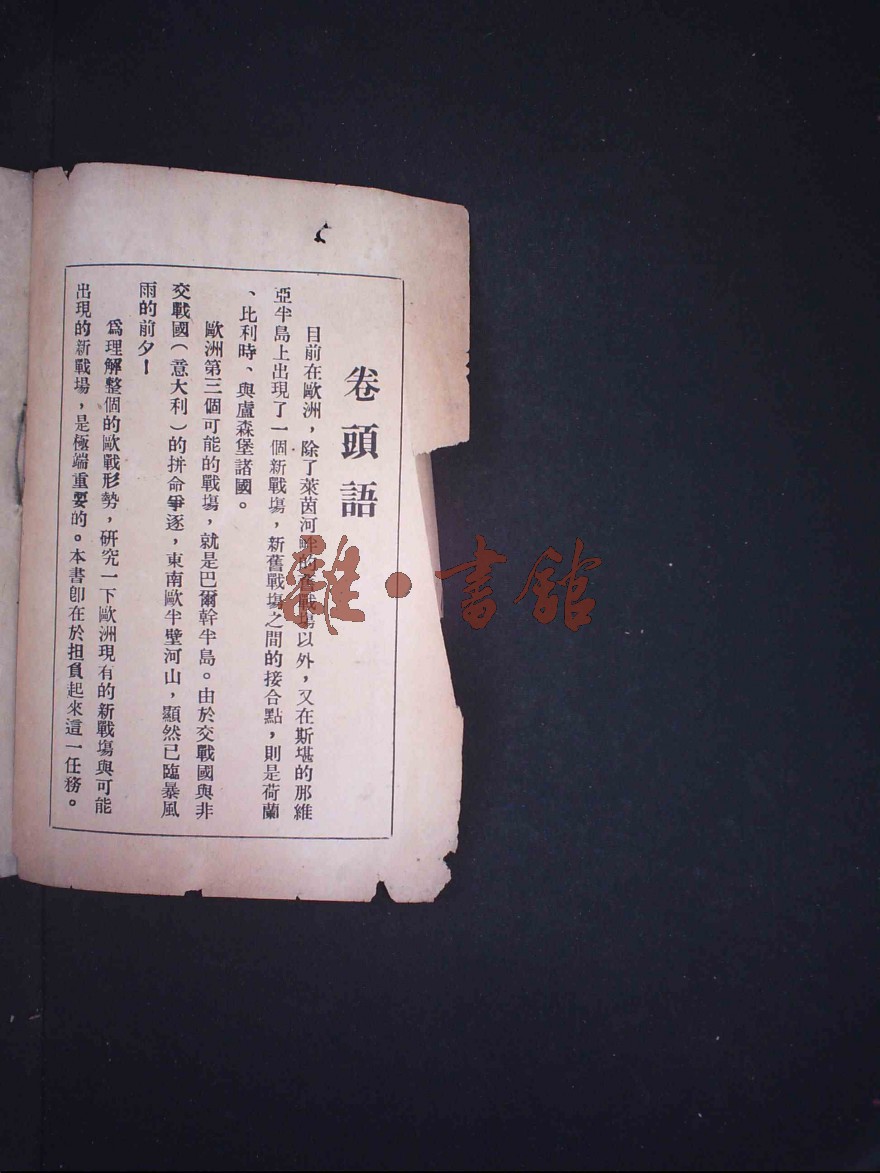 卷頭語
目前在歐洲，除了萊茵河畔的舊戰場以外，又在斯堪的那維
亞半島上出現了一個新戰塲，新舊戰塲之間的接合點，則是荷蘭
、比利時、與盧森堡諸國。
歐洲第三個可能的戰塲，就是巴爾幹半島。由於交戰國與非
交戰國（意大利）的拼命爭逐，東南歐半壁河山，顯然已臨暴風
雨的前夕！
爲理解整個的歐戰形勢，研究一下歐洲現有的新戰塲與可能
出現的新戰塲，是極端重要的。本書卽在於担負起來這一任務。
雜·書館